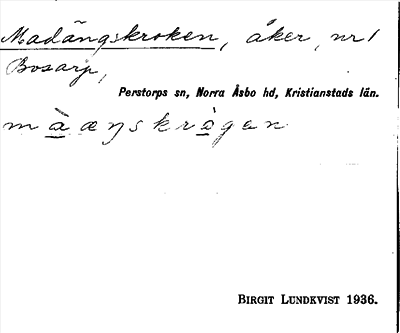 Madängskroken, åker, nr 1
Bosarp,
Perstorps sn, Norra Åsbo hd, Kristianstads län.
m à æŋskrògen
BIRGIT LUNDKVIST 1936.